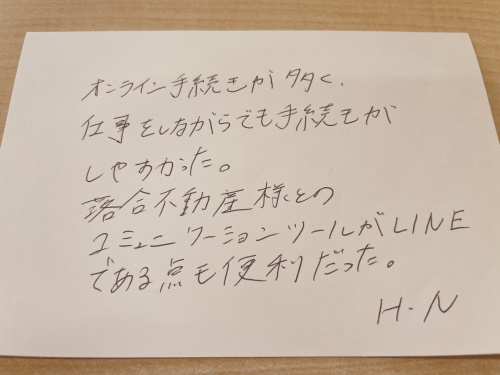 オンライン手続きが多く、
仕事をしながらでも手続きが
しやすかった。
落合不動産様との
コミュニケーションツールがLINE
である点も便利だった。
H.N